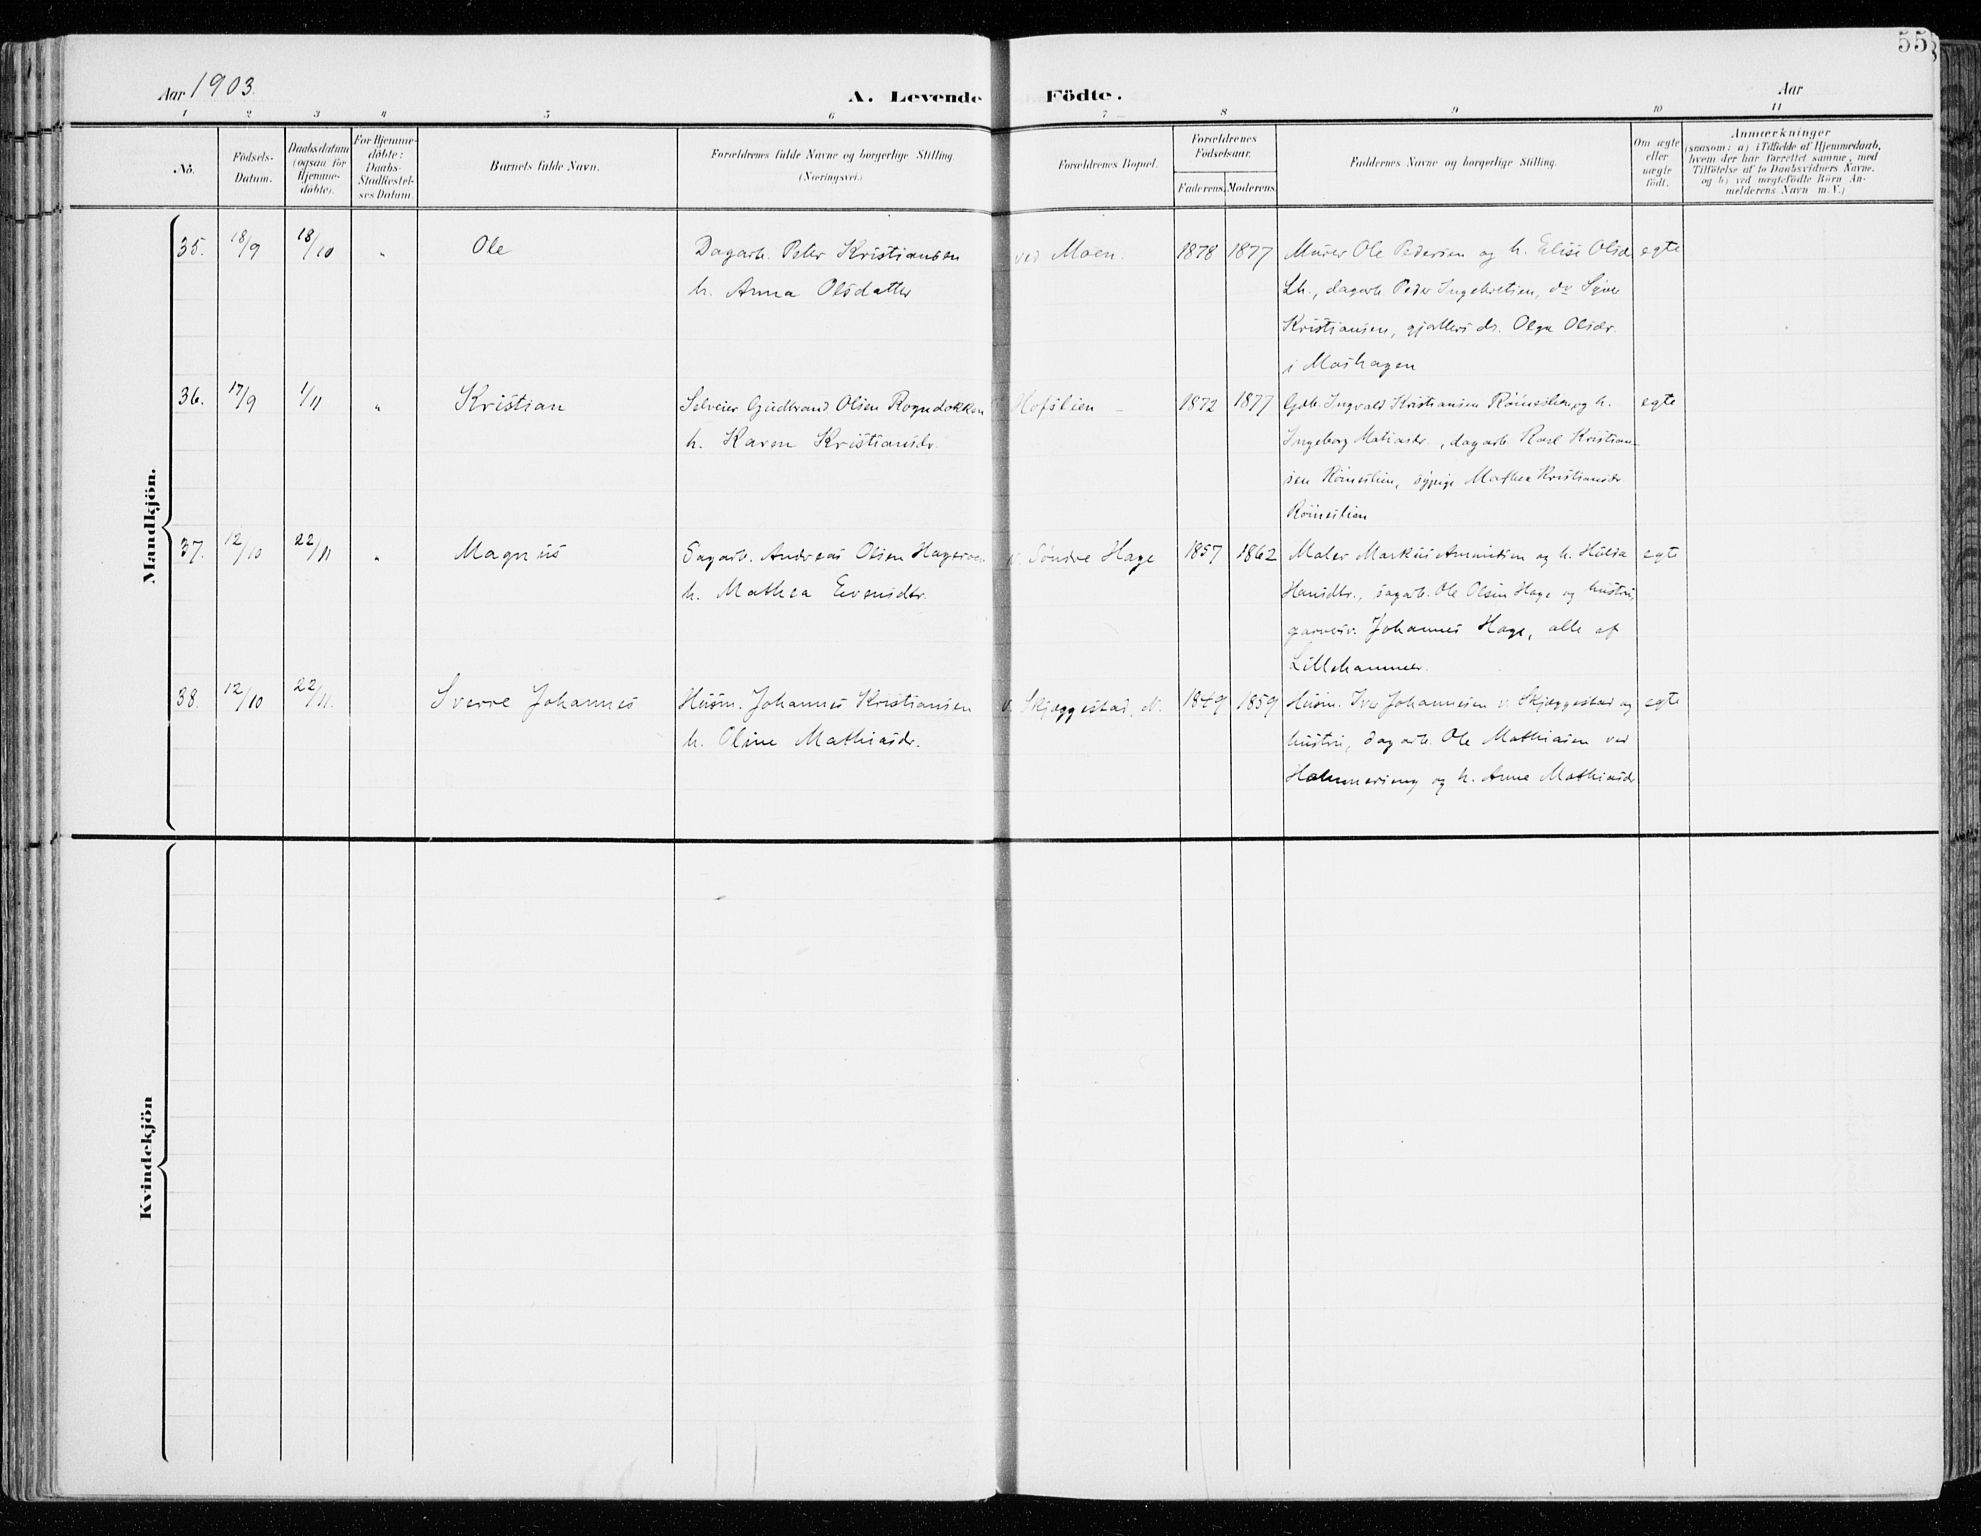 55
Aar 1903.
A. Levende Födte.
Aar
1 2 3 4 5 6 7 8 9 10 11
No.
Födsels-Datum.
Daabsdatum (ogsaa for Hjemme-döbte).
For Hjemme-döbte: Daabs-Stadfæstel-ses Datum.
Barnets fulde Navn.
Forældrenes fulde Navne og borgerlige Stilling (Næringsvei.)
Forældrenes Bopæl.
Forældrenes Födselsaar.
Faderens. Moderens.
Faddernes Navne og borgerlige Stilling.
Om ægte eller uægte födt.
Anmærkninger
(saasom: a) i Tilfælde af Hjemmedaab,
hvem der har forrettet samme, med
Tilföielse af to Daabsvidners Navne.
og b) ved uægtefödte Börn An-
melderens Navn m. V.)
Mandkjön.
35. 18/9 18/10 " Ole Dagarb. Peter Kristiansen ved Moen. 1878 1877 Murer Ole Pedersen og h. Elise Olsdr egte
h. Anna Olsdatter Lh., dagarb. Peder Ingebretsen, do Syver
Kristiansen, gjæters ds. Olga Olsdr.
i Moshagen
36. 17/9 1/11 " Kristian Selveier Gudbrand Olsen Rogndokken Hofslien 1872 1877 Gdb. Ingvald Kristiansen Römeslien og h. egte
h. Karen Kristiansdr. Ingeborg Matiasdr., dagarb. Karl Kristian-
sen Römeslien, sypige Mathea Kristiansdr
Römeslien
37. 12/10 22/11 " Magnus Sagarb. Andreas Olsen v. Søndre Hage 1857 1862 Maler Markus Amundsen og h. egte
h. Mathea Evensdtr. Hansdtr., sagarb. Ole Olsen Hage og hustru,
garvesv. Johannes Hage, alle af
Lillehammer.
38. 12/10 22/11. Sverre Johannes Husm. Johannes Kristiansen v. Skjæggestad, N. 1849 1859 Husm. Iver Johannesen v. Skjæggestad og egte
h. Oline Mathiasdr. hustru, dagarb. Ole Mathiasen ved
Hammereng og h. Anne Mathiasdr
Kvindekjön